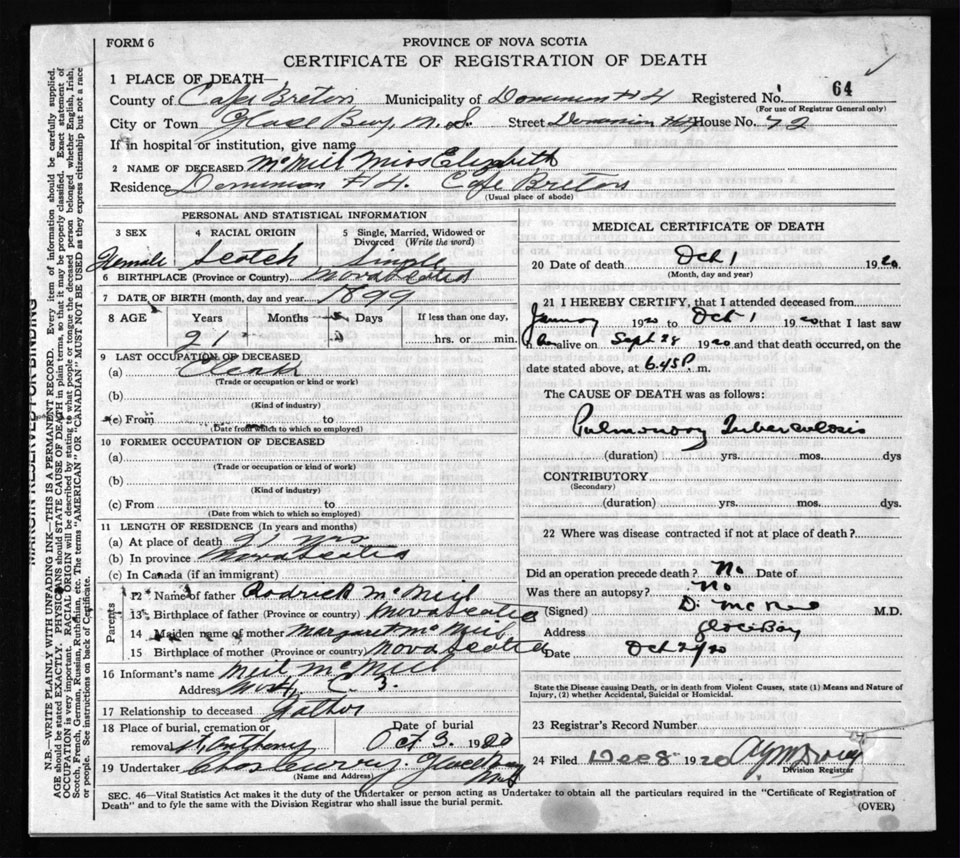 FORM 6
PROVINCE OF NOVA SCOTIA
CERTIFICATE OF REGISTRATION OF DEATH
1 PLACE OF DEATH—
County of Cape Breton Municipality of Dominion #4 Registered No. 64
(For use of Registrar General only)
City or Town Glace Bay, N. S. Street Dominion #4 House No. 72
If in hospital or institution, give name
2 NAME OF DECEASED McNeil Miss Elizabeth
Residence Dominion #4. Cape Breton
(Usual place of abode)
PERSONAL AND STATISTICAL INFORMATION
3 SEX 4 RACIAL ORIGIN 5 Single, Married, Widowed or Divorced (Write the word)
Female Scotch Single
6 BIRTHPLACE (Province or Country) Nova Scotia
7 DATE OF BIRTH (month, day and year) 1899
8 AGE Years Months Days If less than one day,
21 hrs. or min.
9 LAST OCCUPATION OF DECEASED
(a) Clerk
(Trade or occupation or kind or work)
(b)
(Kind of industry)
(c) From to
(Date from which to which so employed)
10 FORMER OCCUPATION OF DECEASED
(a)
(Trade or occupation or kind of work)
(b)
(Kind of industry)
(c) From to
(Date from which to which so employed)
11 LENGTH OF RESIDENCE (In years and months)
(a) At place of death 21 yrs
(b) In province Nova Scotia
(c) In Canada (if an immigrant)
Parents
12 Name of father Rodrick McNeil
13 Birthplace of father (Province or country) Nova Scotia
14 Maiden name of mother Margaret McNeil
15 Birthplace of mother (Province or country) Nova Scotia
16 Informant's name Neil McNeil
Address
17 Relationship to deceased
18 Place of burial, cremation or removal St. Anthony Date of burial Oct 3. 1920
19 Undertaker Chas Curry Glace Bay
(Name and Address)
MEDICAL CERTIFICATE OF DEATH
20 Date of death Oct 1 1920
(Month, day and year)
21 I HEREBY CERTIFY, that I attended deceased from
January 1920 to Oct 1 1920 that I last saw
alive on Sept 28 1920 and that death occurred, on the
date stated above, at 6.45 P. m.
The CAUSE OF DEATH was as follows:
Pulmonary Tuberculosis
(duration) yrs. mos. dys
CONTRIBUTORY
(Secondary)
(duration) yrs. mos. dys.
22 Where was disease contracted if not at place of death?
Did an operation precede death? No Date of
Was there an autopsy? No
(Signed) M.D.
Address Glace Bay
Date Oct 2/20
State the Disease causing Death, or in death from Violent Causes, state (1) Means and Nature of
Injury, (2) whether Accidental, Suicidal or Homicidal.
23 Registrar's Record Number
24 Filed Dec 8 1920
Division Registrar
SEC. 46—Vital Statistics Act makes it the duty of the Undertaker or person acting as Undertaker to obtain all the particulars required in the "Certificate of Registration of
Death" and to fyle the same with the Division Registrar who shall issue the burial permit.
(OVER)
MARGIN RESERVED FOR BINDING
N.B.—WRITE PLAINLY WITH UNFADING INK—THIS IS A PERMANENT RECORD. Every item of information should be carefully supplied.
AGE should be stated EXACTLY. PHYSICIANS should STATE CAUSE OF DEATH in plain terms, so that it may be properly classified. Exact statement of
OCCUPATION is very important. RACIAL ORIGIN will be described by stating to what people or tongue the deceased person belonged whether English, Irish,
Scotch, French, German, Russian, Ruthenian, etc. The terms "AMERICAN" OR "CANADIAN" MUST NOT BE USED as they express citizenship but not a race
or people. See instructions on back of Certificate.